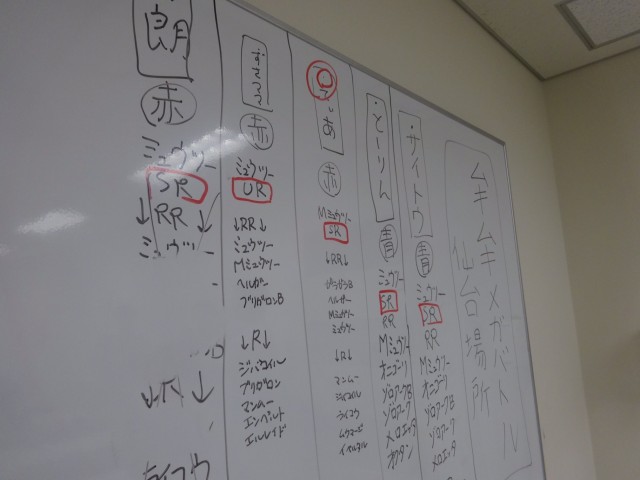 ムキムキメガバトル
仙台場所
・サイトウ
青
ミュウツー
SR
RR
Mミュウツー
オニゴーリ
ゾロアークB
ゾロアーク
メロエッタ
青
ミュウツー
SR
RR
Mミュウツー
オニゴーリ
ゾロアークB
ゾロアーク
メロエッタ
オクタン
赤
Mミュウツー
SR
↓RR↓
ヘルガー
Mミュウツー
ミュウツー
↓R↓
マンムー
ジバコイル
ライコウ
ムウマージ
イベルタル
赤
ミュウツー
UR
↓RR↓
ミュウツー
Mミュウツー
ヘルガー
ブリガロンB
↓R↓
ジバコイル
ブリガロン
マンムー
エンペルト
エルレイド
朗
赤
ミュウツー
SR
↓RR↓
ミュウツー
↓R↓
ライコウ